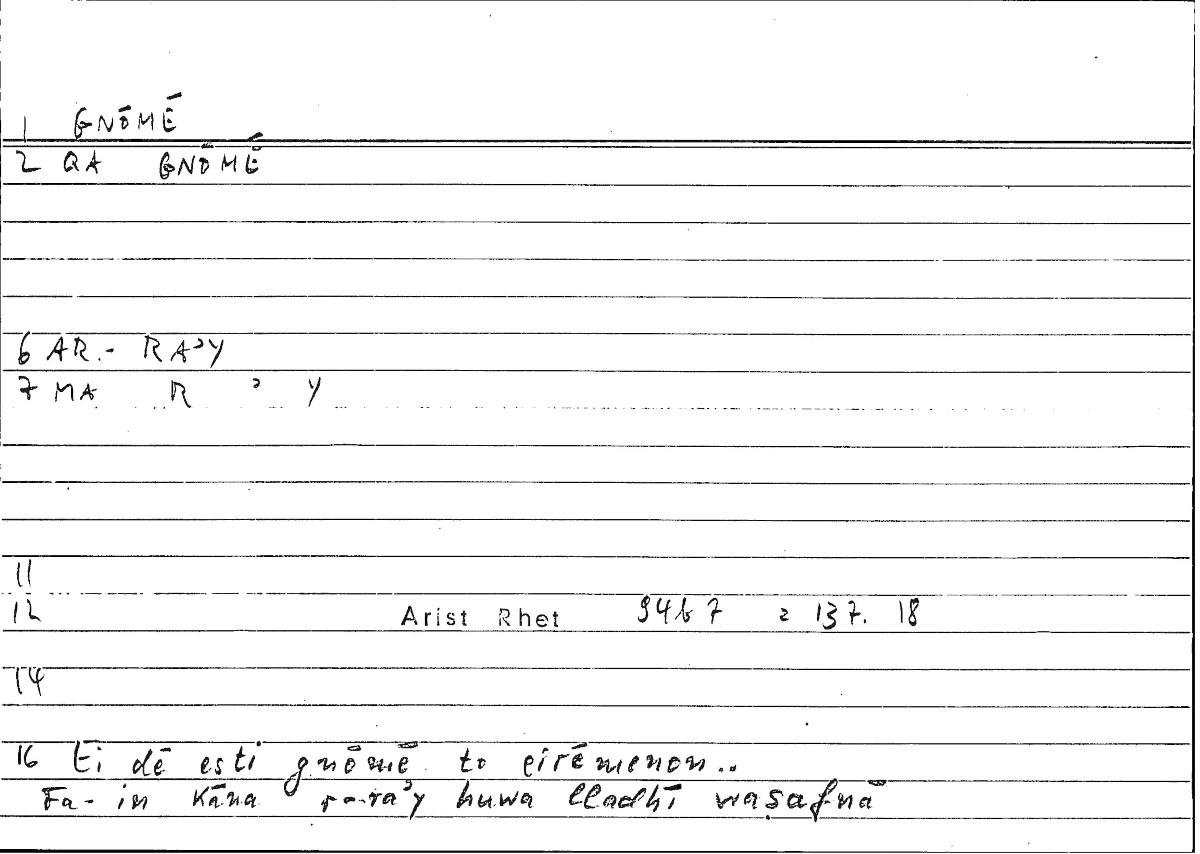 1 GNŌMĒ
2 QA GNŌMĒ
6 AR.- RAʾY
7 MA R ʾ Y
11
12 Arist Rhet 94b7 = 137. 18
14
16 Ei dē esti gnōmē to eirēmenon..
Fa- in kāna r-raʾy huwa lladhī waṣafnā